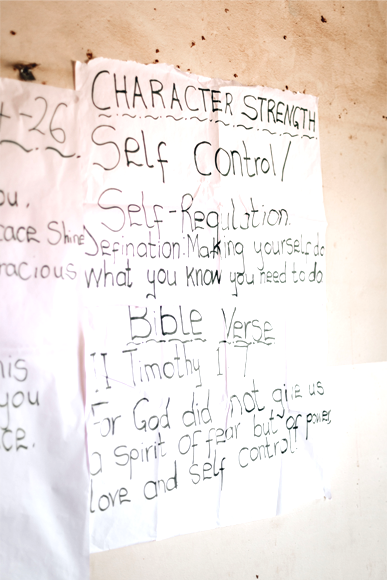 -26
ou,
Shine
racious
his
you
CHARACTER STRENGTH
Self Control/
Self-Regulation
Defination:Making yourself do
what you know you need to do
Bible Verse
II Timothy 1 7
For God did not give us
a spirit of fear but of power,
love and self control.